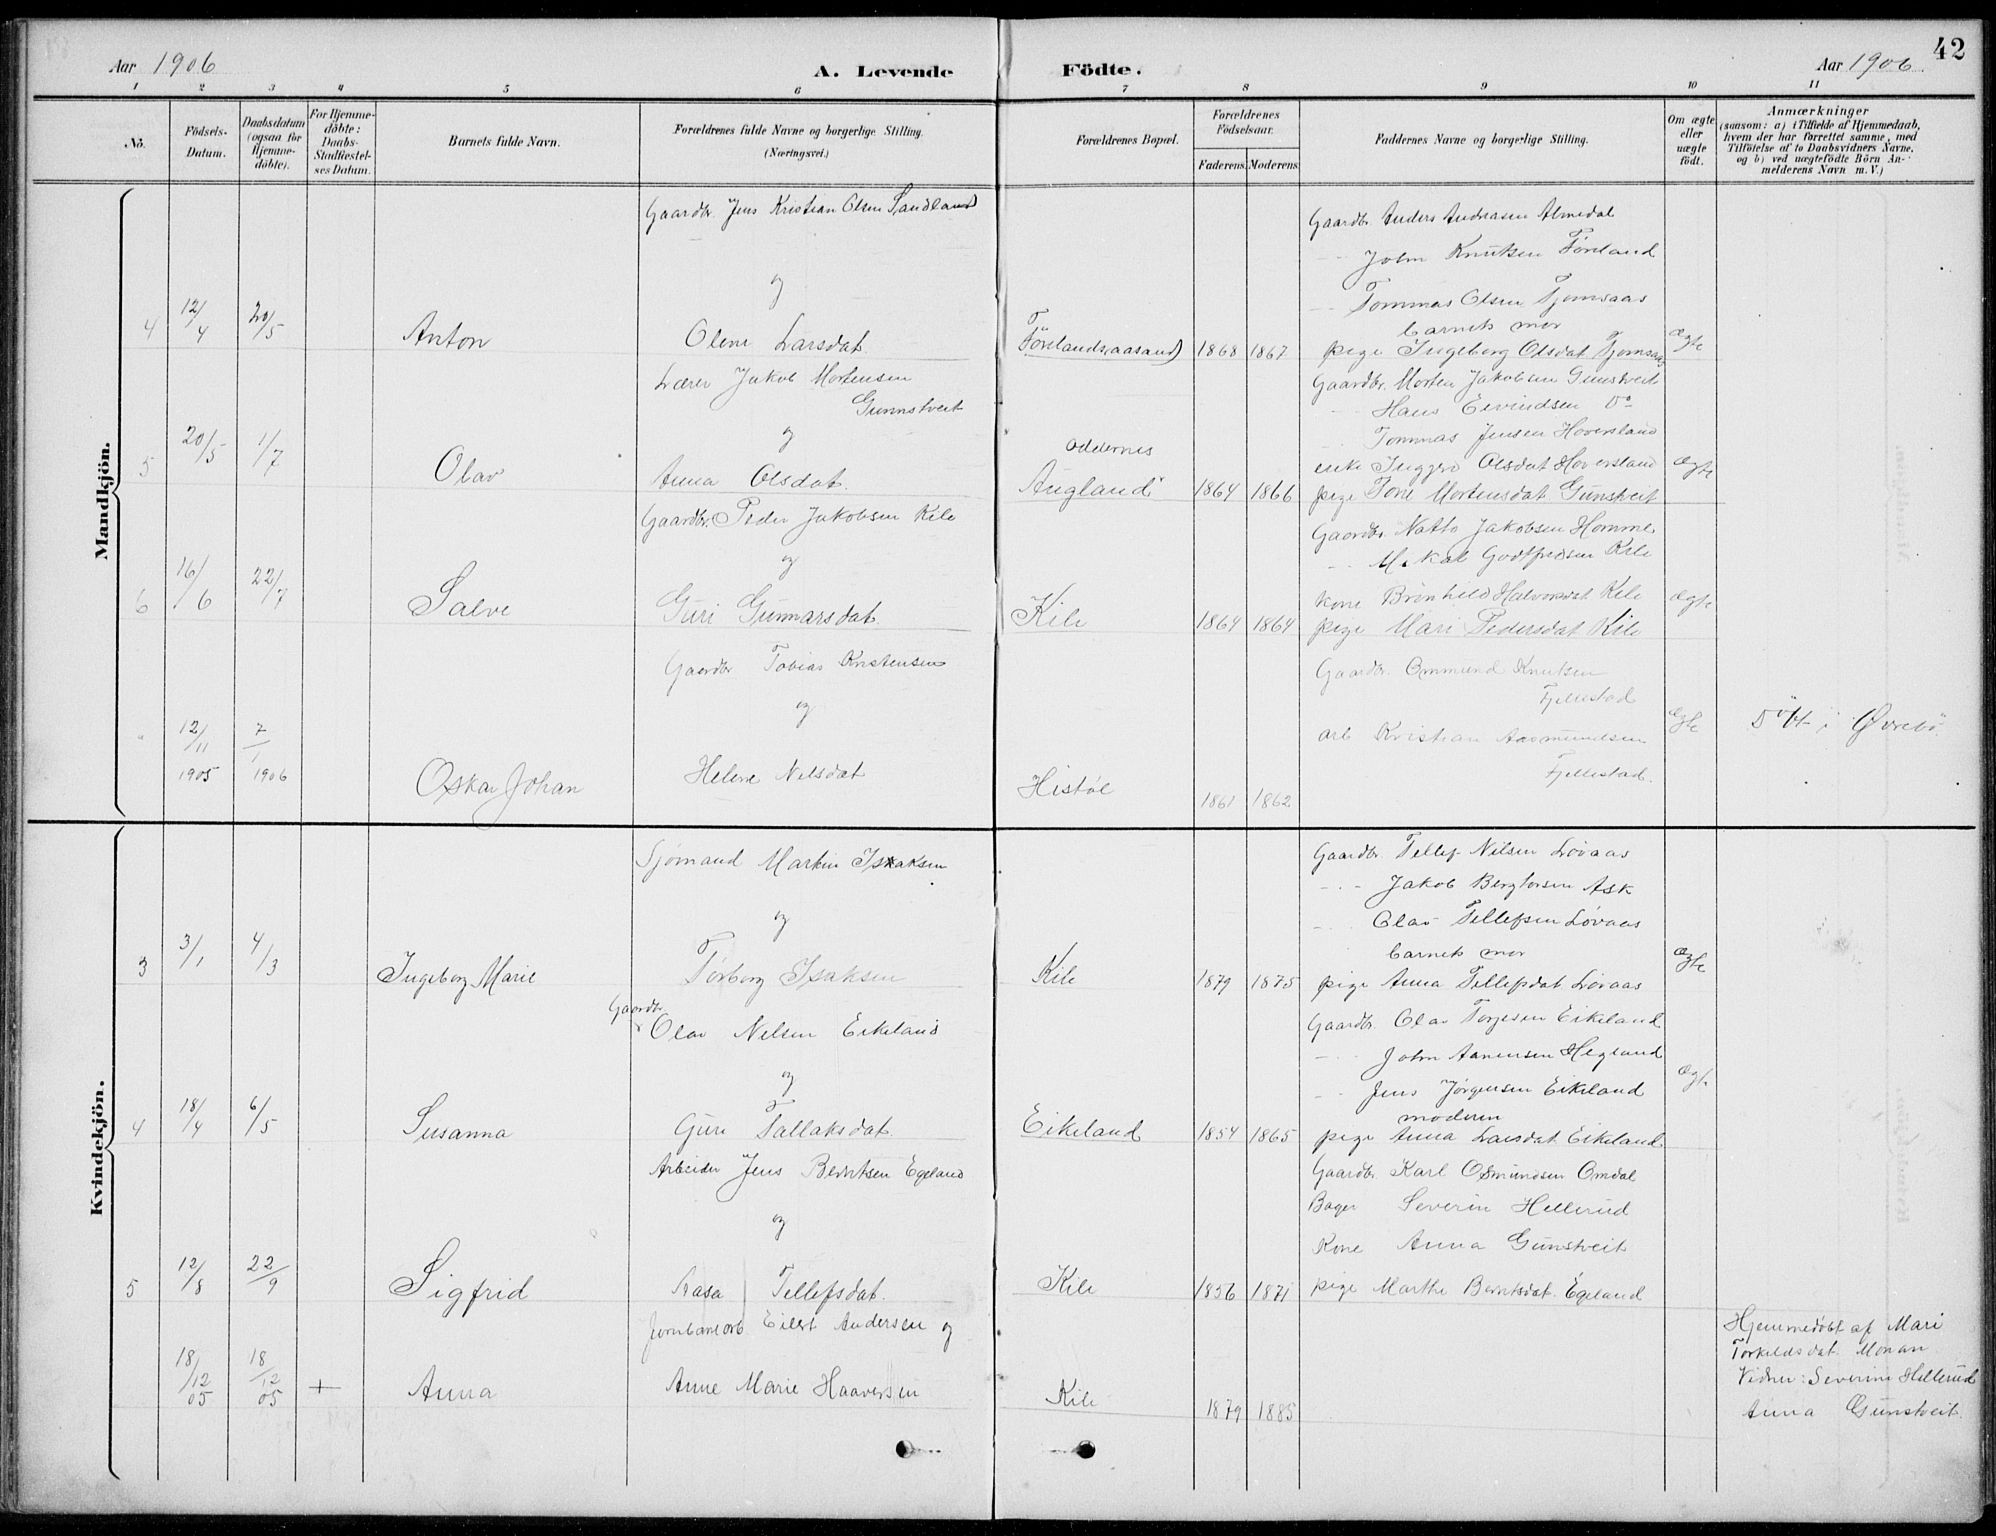 42
Aar 1906
A. Levende Födte.
Aar 1906
1 2 3 4 5 6 7 8 9 10 11
No.
Födsels-Datum.
Daabsdatum (ogsaa for Hjemmedöbte).
For Hjemmedöbte: Daabs-Stadfæstelses Datum.
Barnets fulde Navn.
Forældrenes fulde Navne og borgerlige Stilling. (Næringsvei.)
Forældrenes Bopæl.
Forældrenes Födselsaar.
Faderens. Moderens.
Faddernes Navne og borgerlige Stilling.
Om ægte eller uægte födt.
Anmærkninger
(saasom: a) i Tilfælde af Hjemmedaab, hvem der har forrettet samme, med Tilföielse af to Daabsvidners Navne, og b) ved uægtefödte Börn Anmelderens Navn m. V.)
Mandkjön.
Gaardbr. Jens Kristian Olsen Sandland
og
4 12/4 20/5 Anton Olene Larsdat Förelandsaasand 1868 1867
Gaardbr Anders Andreasen Almedal
- - John Knutsen Föreland
- - Tommas Olsen Tjomsaas
barnets mor
pige Ingeborg Olsdat Tjomsaas
Ægte
Lærer Jakob Mortensen
Gunnstveit
og
5 20/5 1/7 Olav Anna Olsdat. Oddernes
Augland 1864 1866
Gaardbr. Morten Jakobsen Gunstveit
- - Hans Eivindsen Do
- - Tommas Jensen Hoversland
enke Inggerd Olsdat Hoversland
pige Tone Mortensdat Gunstveit
Ægte
Gaardbr. Peder Jakobsen Kile
og
6 16/6 22/7 Salve Guri Gunnarsdat Kile 1864 1864
Gaardbr Natto Jakobsen Homme
- - Mikal Godtfredsen Kile
kone Brönhild Halvorsdat Kile
pige Mari Pedersdat Kile
Ægte
Gaardbr Tobias Kristensen
og
" 12/11 1905 7/1 1906 Oskar Johan Helene Nilsdat Histöl 1861 1862
Gaardbr. Ommund Knutsen
Fjellestad
arb Kristian Aasmundsen
Fjellestad.
Egte
Döbt i Øvrebö.
Kvindekjön.
Sjömand Martin Isaksen
og
3 3/1 4/3 Ingeborg Marie Torborg Isaksen Kile 1879 1875
Gaardbr. Tellef Nilsen Lövaas
- - Jakob Bergtorsen Ask
- - Olav Tellefsen Lövaas
barnets mor
pige Anna Tellefsdat Lövaas
Ægte
Gaardbr
Olav Nilsen Eikeland
og
4 18/4 6/5 Susanna Guri Tallaksdat. Eikeland 1854 1865
Gaardbr. Olav Torjesen Eikeland
- - John Aanensen Hegland
- - Jens Jörgensen Eikeland
moderen
pige Anna Larsdat Eikeland
Ægte
Arbeider Jens Berntsen Egeland
og
5 12/8 22/9 Sigfrid Aasa Tellefsdat. Kile 1856 1871
Gaardbr. Karl Osmundsen Omdal
Bager Severin Hellerud
Kone Anna Gunstveit
pige Marthe Berntsdat. Egeland
Jernbanearb Eilert Andersen og
18/12 05 18/12 05 + Anna Anne Marie Haaversen Kile 1879 1885
Hjemmedöbt af Mari
Torkildsdat. Monan
Vidner: Severine Hellerud
Anna Gunstveit.